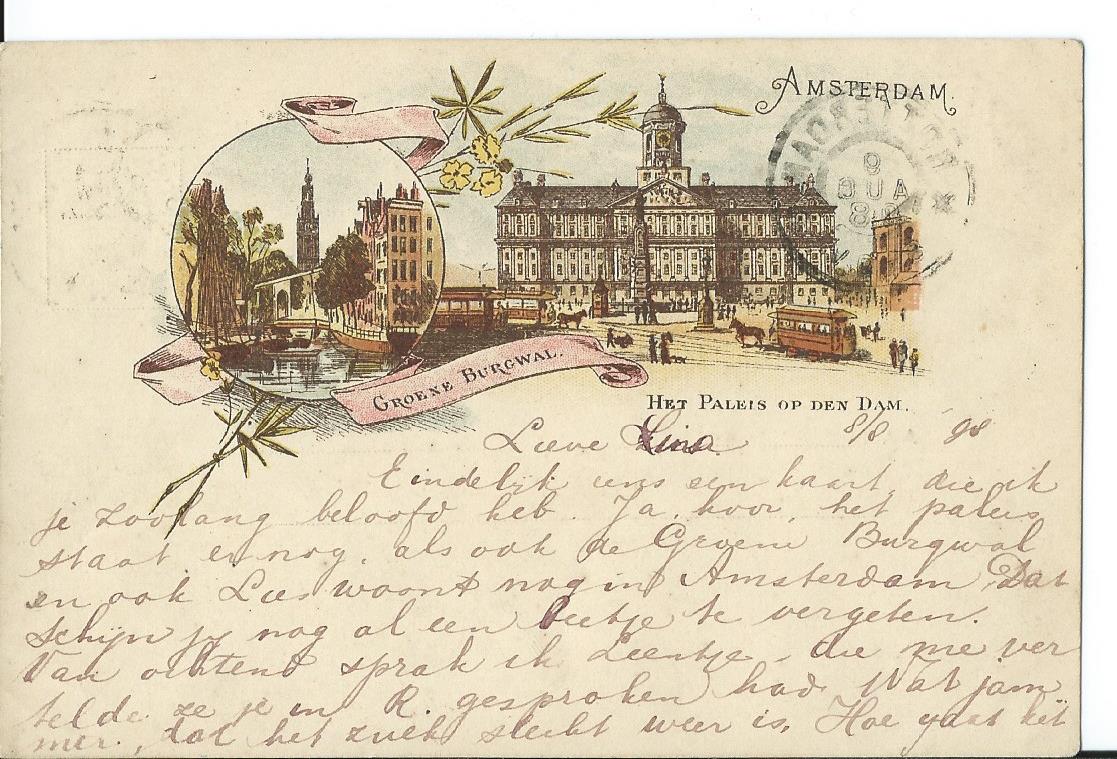 AMSTERDAM.
9
8
GROENE BURGWAL.
HET PALEIS OP DEN DAM.
8/8 98
Lieve Lina.
Eindelijk eens een kaart, die ik
je zoolang beloofd heb. Ja, hoor, het paleis
staat er nog, als ook de Groene Burgwal
en ook Lies woont nog in Amsterdam. Dat
schijn je nog al een beetje te vergeten.
Van ochtend sprak ik Leentje, die me ver
telde ze je in R. gesproken had. Wat jam
mer, dat het zoo slecht weer is. Hoe gaat het